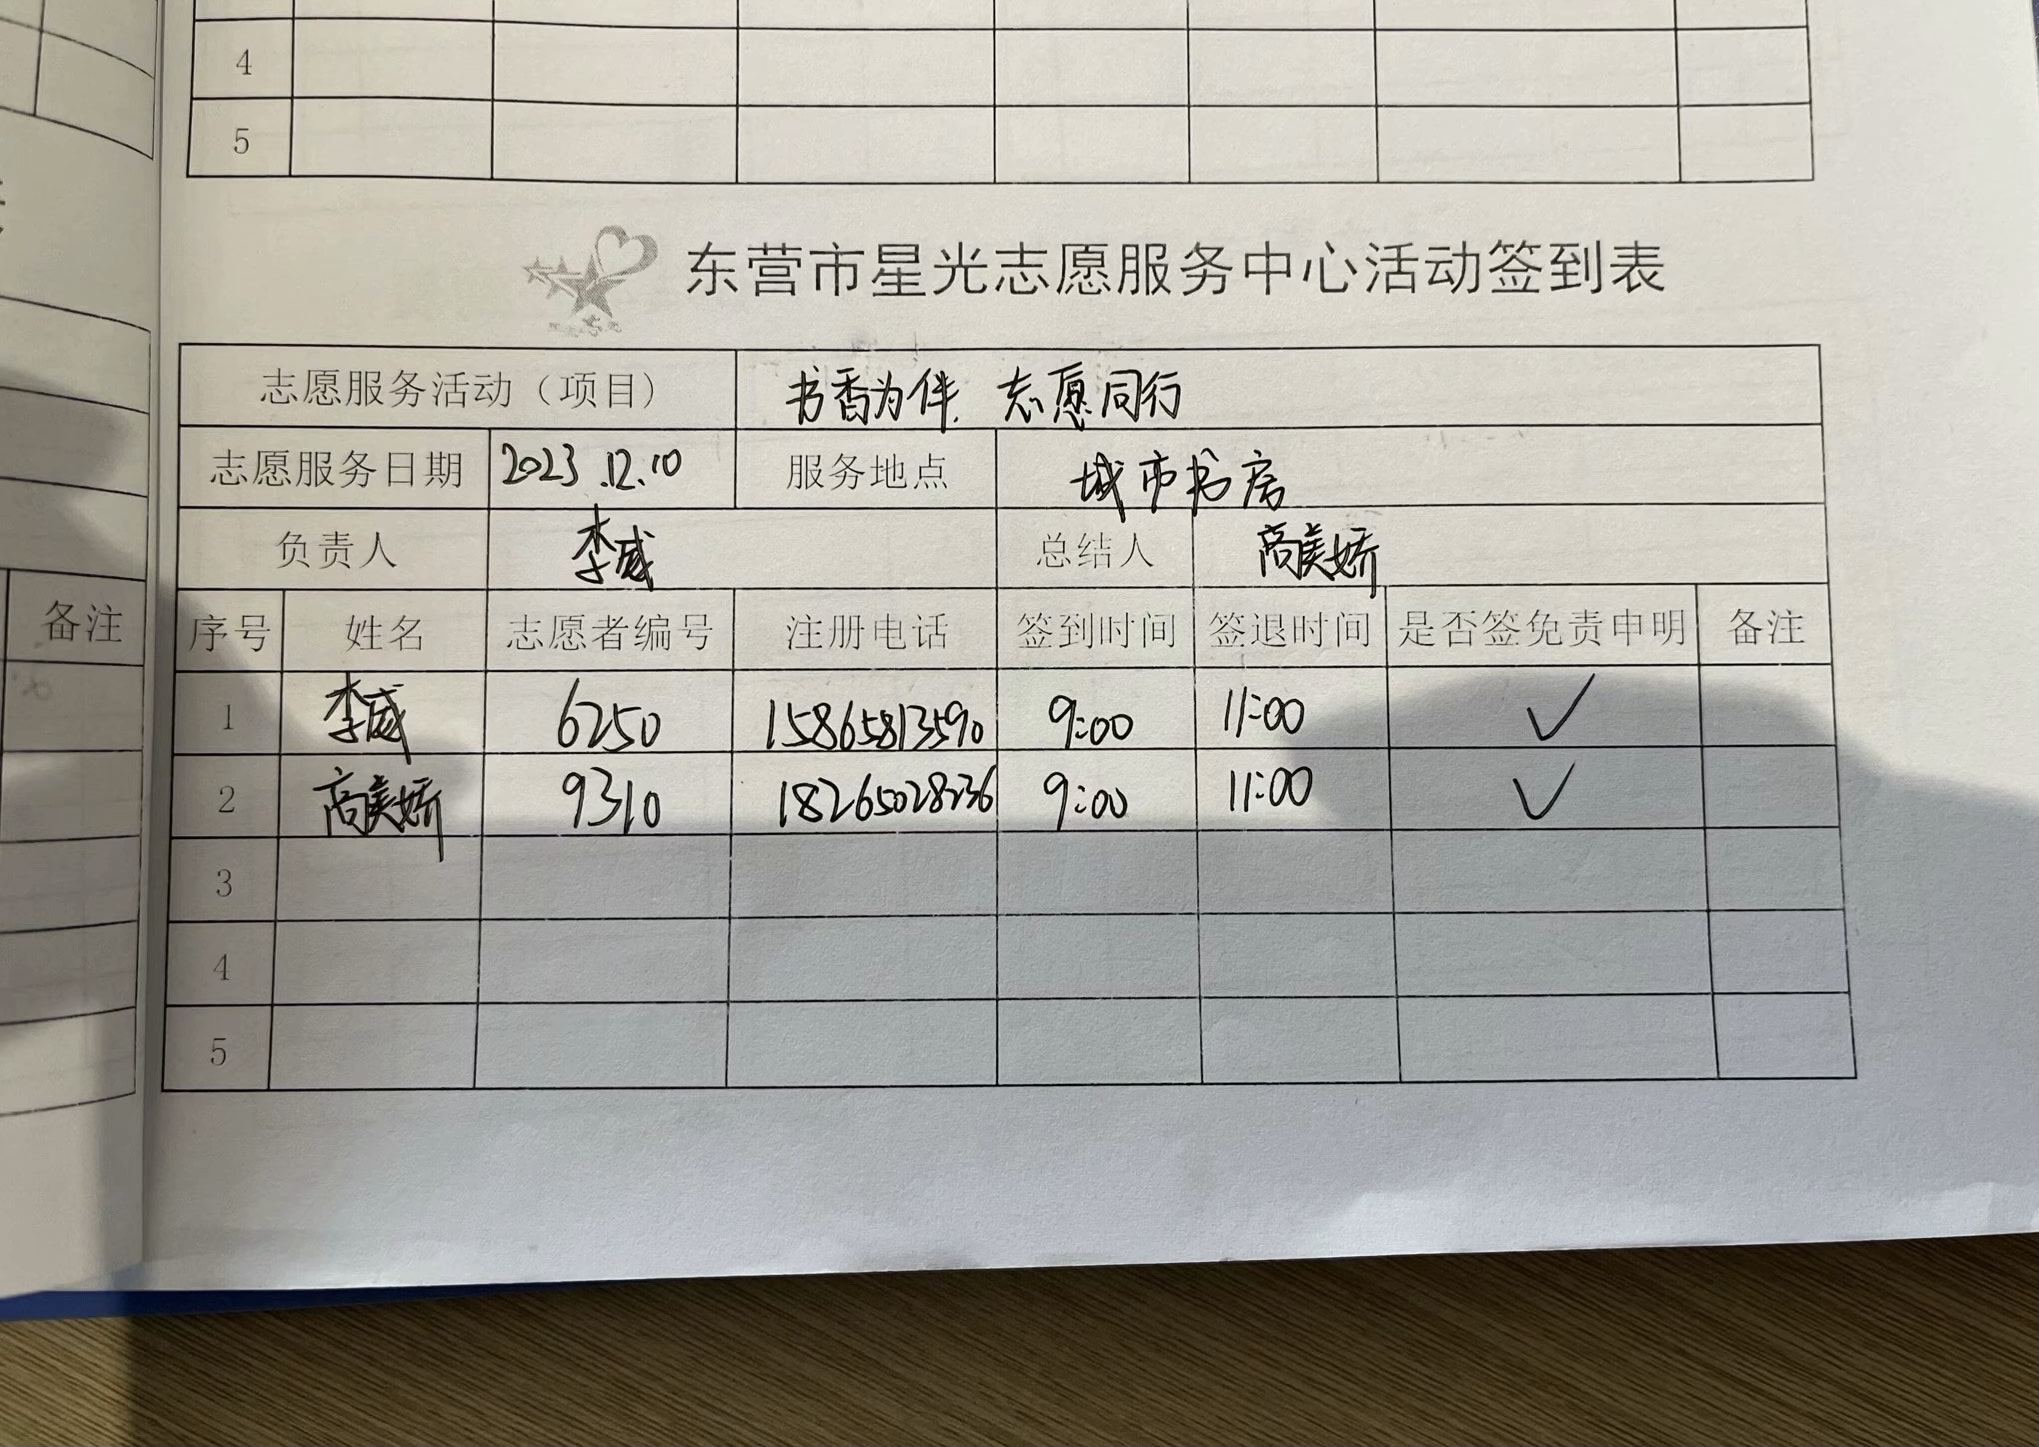 4
5
东营市星光志愿服务中心活动签到表
志愿服务活动（项目） 书香为伴 志愿同行
志愿服务日期 2023.12.10 服务地点 城市书房
负责人 李威 总结人 高美娇
备注
序号 姓名 志愿者编号 注册电话 签到时间 签退时间 是否签免责申明 备注
1 李威 6250 15865813590 9:00 11:00 ✓
2 高美娇 9310 18265028236 9:00 11:00 ✓
3
4
5